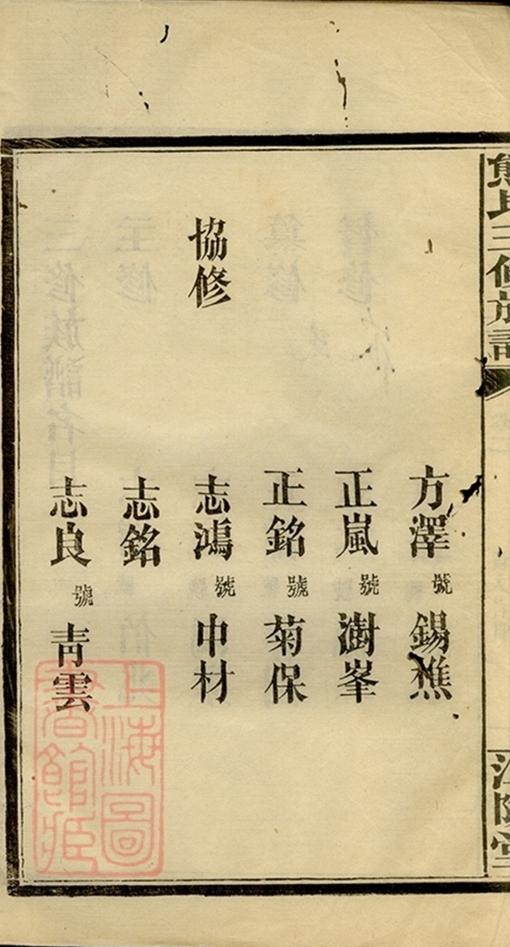 熊氏三修族譜
江陵堂
方澤號錫樵
正嵐號澍峯
正銘號菊保
協修 志鴻號中材
志銘
志良號青雲
上海圖
書館藏